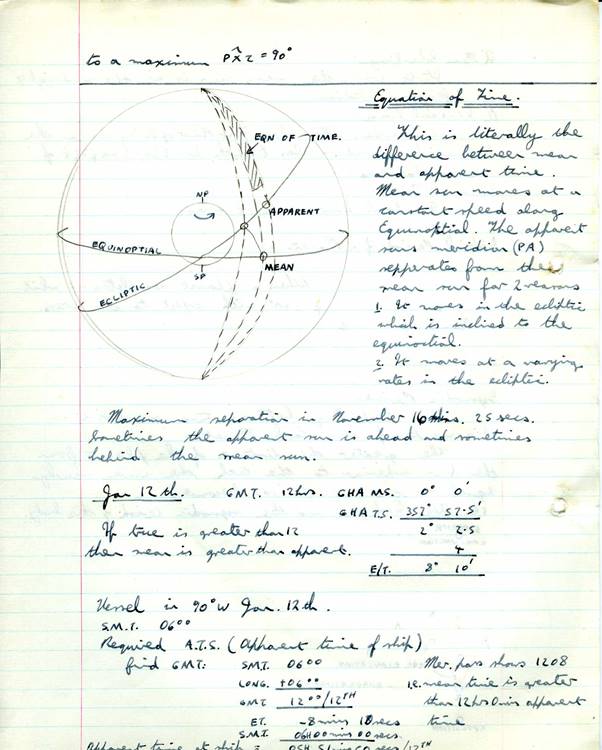 to a maximum PX̂Z = 90°
Equation of Time.
EQN OF TIME.
NP
APPARENT
EQUINOPTIAL
SP
MEAN
ECLIPTIC
This is literally the
difference between mean
and apparent time.
Mean sun moves at a
constant speed along
Equinoptial. The apparent
suns meridian (PA)
sepperates from the
mean sun for 2 reasons
1. It moves in the ecliptic
which is inclied to the
equinoctial.
2. It moves at a varying
rates in the ecliptic.
Maximum separation in November 16 mins. 25 secs.
Sometimes the apparent sun is ahead and sometimes
behind the mean sun.
Jan 12th. GMT. 12hrs. GHA MS. 0° 0'
GHA T.S. 357° 57.5'
If true is greater than 12 2° 2.5
then mean is greater than apparent. 4
E/T. 8° 10'
Vessel in 90°W Jan. 12th.
S.M.T. 0600
Required A.T.S. (Apparent time of ship)
find GMT: SMT. 0600 Mer. pass shows 1208
LONG. +0600 i.e. mean time is greater
GMT 1200/12TH than 12hrs 0mins apparent
ET. -8mins 10secs time
S.M.T. 06H00mins00secs.
Apparent time at ship = 05H 51mins 50 secs/12TH